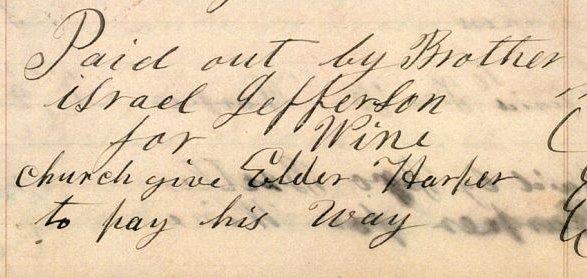 Paid out by Brother
israel Jefferson
for Wine
church give Elder Harper
to pay his Way